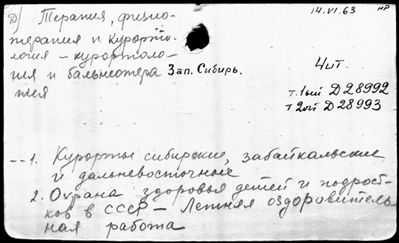 Д) Терапия, физио-
14.VI.63 НР
терапия и курорто-
логия – курортоло-
гия и бальнеотера
Зап. Сибирь.
пия
Чит.
т. 1ый Д 28992
т 2ой Д 28993
--1. Курорты сибирские, забайкальские
и дальневосточные
2. Охрана здоровья детей и подрост-
ков в СССР – Летняя оздоровитель-
ная работа